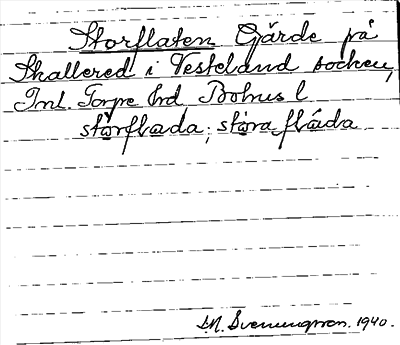 Storflaten Gärde på
Skallered i Vesteland socken,
Inl. Torpe hd Bohus l
stårflada, stora flåda
M. Svenungsson. 1940.